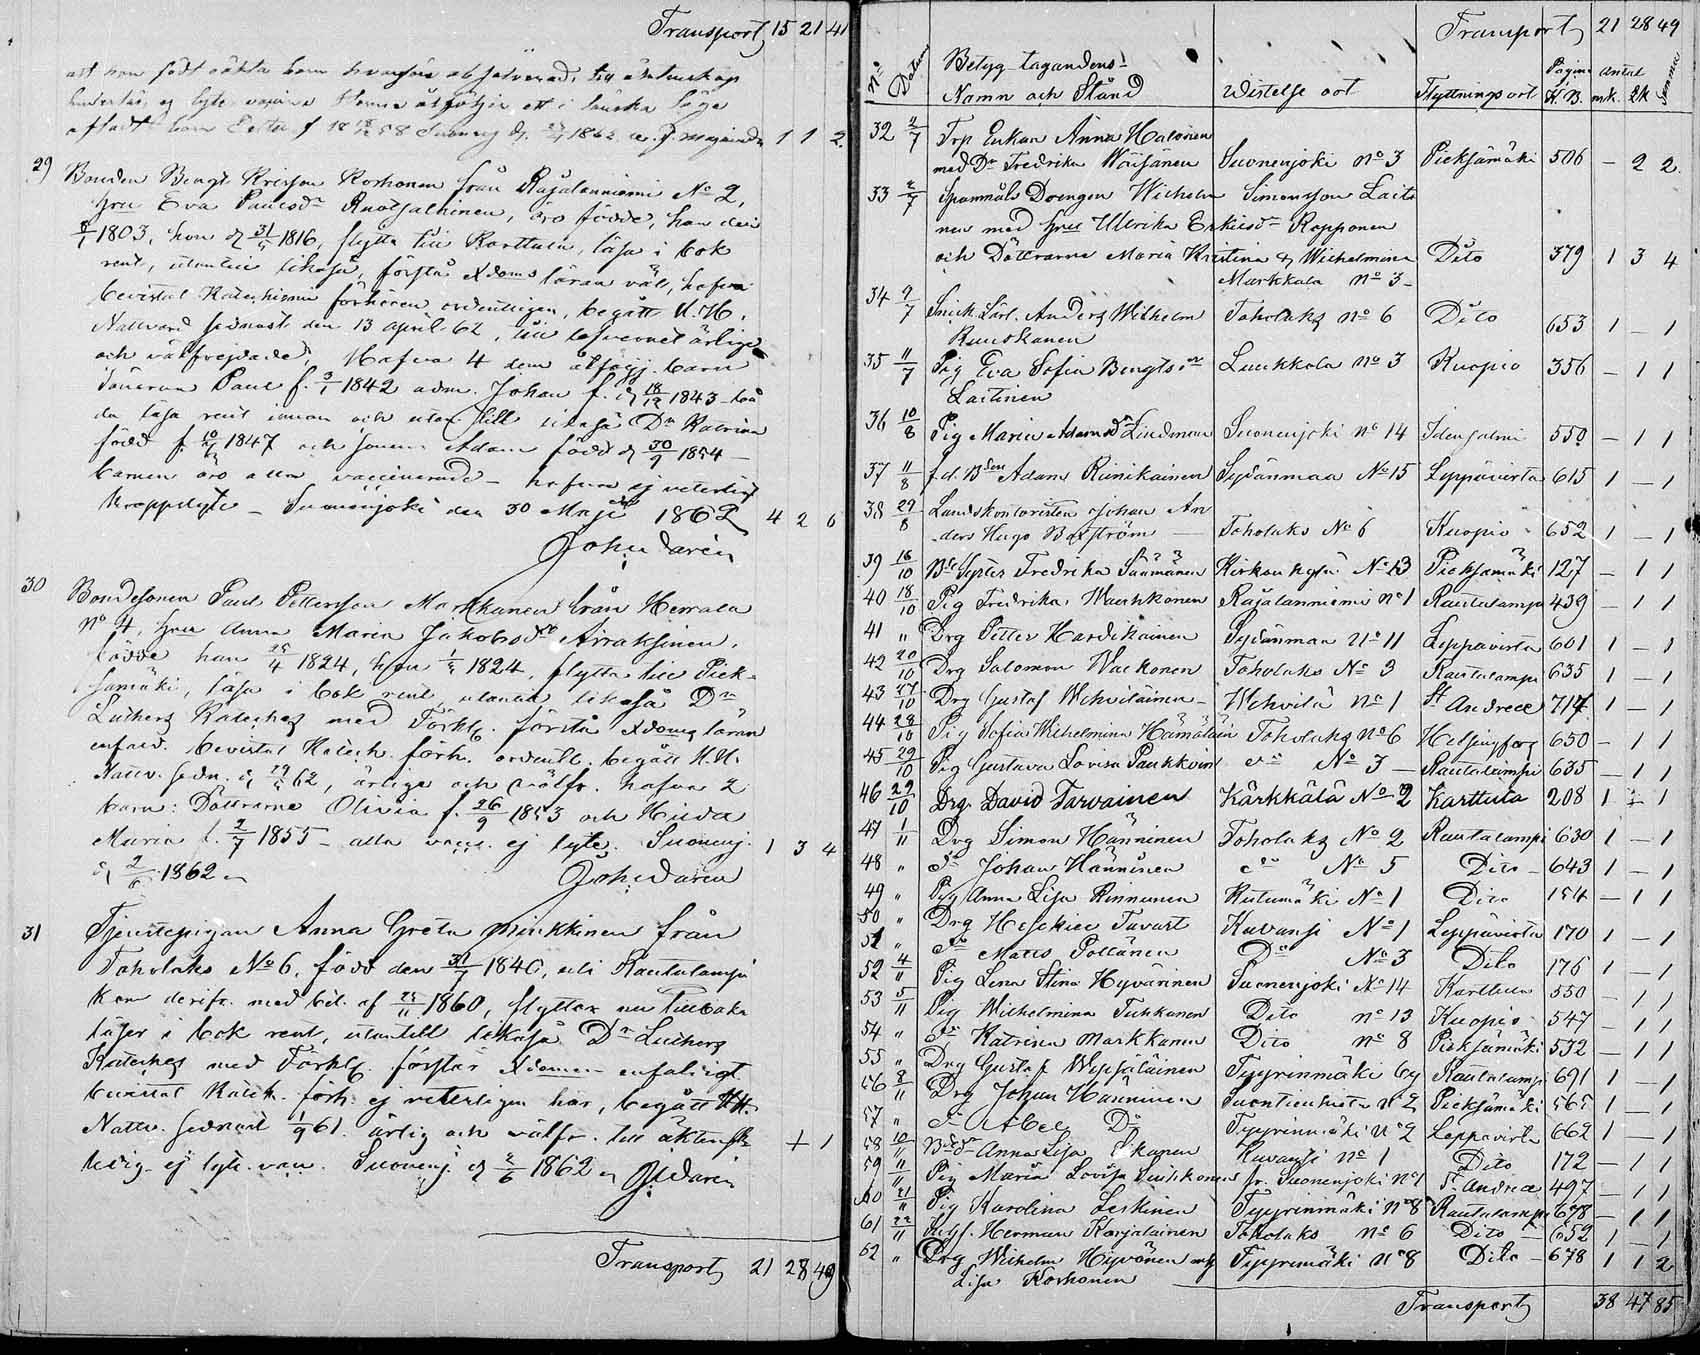 Transport 15 21 41
att hon födt oäkta barn hvarföre absolverad, till äktenskap
hinderlös, ej lyte, vaccin. Henne åtföljer ett i lönska läge
afladt barn Petter f. 1858 Suonenj. d. 1862 1 1 2.
29) Bonden Bengt Ericsson Korhonen från Rajalanniemi No 2,
hru Eva Paulsdr Ruotsalainen, äro födde, han den
1803, hon d 31/5 1816, flytta till Karttula, läsa i bok
rent, utantill likaså, förstå Xdoms läran väl, hafva
bevistat Katechismi förhören ordentligen, begått H. H.
Nattvard sednast den 13 april 62, till lefvernet ärlige
och välfrejdade. Hafva 4 dem åtföljj. barn
sönerna Paul f. 3/1 1842 adm. Johan f. d 18/12 1843 två
da läsa rent innan och utan till likaså Dr Katrina
född f. 10/2 1847 och sonen Adam född d 30/9 1854 —
barnen äro alla vaccinerade — hafva ej veterligt
kroppslyte — Suonenjoki den 30 Maji 1862 4 2 6
Joh. Darén
30 Bondesonen Paul Pettersson Markkanen från Herrala
No 4, hru Anna Maria Jakobsdr Arraksinen,
födde han 25/4 1824, hon 1824, flytta till Piek-
sämäki, läsa i bok rent utantill likaså Dr
Luthers Kateches med Förklg. förstå Xdoms läran
enfald. bevistat Katech. förh. ordentl. begått H. H.
Nattv. sedn. d 62, ärlige och välfr. hafva 2
barn: Döttrarne Olivia f. 26/9 1853 och Hilda
Maria f. 2/7 1855 — alla vacc. ej lyte. Suonenj. 1 3 4
d 2/6 1862
Joh. Darén
31 Tjenstepigan Anna Greta Minkkinen från
Toholaks No 6, född den 31/7 1840, uti Rautalampi
kom derifr. med bet. af 25/11 1860, flyttar nu tillbaka
läser i bok rent, utantill likaså Dr Luthers
Kateches med Förklg. förstår Xdomen enfaldigt
bevistat Katek. förh. ej veterligen har, begått H. H.
Nattv. sednast 1/9 61. ärlig och välfr. till äktensk. + 1
ledig. ej lyte. vacc. Suonenj. d 2/6 1862 Joh. Darén
Transport 21 28 49
Transport 21 28 49
No Datum Betyg-tagandens Namn och Stånd Wistelse ort Flyttnings ort Pagina K. B. Antal mk. qk Summa
32 2/7 Trp Enkan Anna Halonen
med Dr Fredrika Wäisänen Suonenjoki No 3 Pieksämäki 506 — 2 2.
33 2/7 Spanmåls Drengen Wilhelm Simonsson Laiti
nen med hru Ullrika Erkiisdr Ropponen
och Döttrarna Maria Kristina & Wilhelmina Dito 379 1 3 4
Markkala No 3 —
34 9/7 Snick. Lärl. Anders Wilhelm Toholaks No 6 Dito 653 1 — 1
Ruuskanen
35 11/7 Pig Eva Sofia Bengtsdr Luukkola No 3 Kuopio 356 — 1 1
Laitinen
36 10/8 Pig Maria Adamsdr Lindman Suonenjoki No 14 Idensalmi 550 — 1 1
37 11/8 f. d. Bden Adam Rinikainen Sydänmaa No 15 Leppävirta 615 1 — 1
38 29/8 Landskontoristen Johan An
ders Hugo Boxström — Toholaks No 6 Kuopio 652 1 — 1
39 16/10 Bde Syster Fredrika Säämänen Kirkonkylä No 13 Pieksämäki 127 — 1 1
40 18/10 Pig Fredrika Wauhkonen Rajalanniemi No 1 Rautalampi 439 — 1 1
41 " Drg Petter Hardikainen Sydänmaa No 11 Leppävirta 601 1 — 1
42 20/10 Drg Salomon Warkonen Toholaks No 3 Rautalampi 635 1 — 1
43 27/10 Drg Gustaf Wehviläinen — Wehvilä No 1 St Andree 717 1 — 1
44 28/10 Pig Sofia Wilhelmina Hämäläin Toholaks No 6 Helsingfors 650 — 1 1
45 29/10 Pig Gustava Lovisa Paukkoin do No 3 — Rautalampi 635 — 1 1
46 29/10 Drg. David Tarvainen Kärkkälä No 2 Karttula 208 1 — 1
47 1/11 Drg Simon Hänninen Toholaks No 2 Rautalampi 630 1 — 1
48 " do Johan Hänninen do No 5 Dito 643 1 — 1
49 " Pig Anna Lisa Rinnunen Kutumäki No 1 Dito 154 — 1 1
50 " Drg Heskiel Tavast Kuvansi No 1 Leppävirta 170 1 — 1
51 " do Matts Pöllänen Do No 3 Dito 176 1 — 1
52 4/11 Pig Lena Stina Hyvärinen Suonenjoki No 14 Karttula 550 — 1 1
53 5/11 Pig Wilhelmina Tuhkanen Dito No 13 Kuopio 547 — 1 1
54 " do Katrina Markkanen Dito No 8 Pieksämäki 532 — 1 1
55 " Drg Gustaf Wepsäläinen Tyyrinmäki by Rautalampi 691 1 — 1
56 8/11 Drg Johan Hänninen No 2 Pieksämäki 565 1 — 1
57 " do Abel Do Tyyrinmäki No 2 Leppävirta 662 1 — 1
58 10/11 Bdedr Anna Lisa Ikonen Kuvansi No 1 Dito 172 — 1 1
59 11/11 Pig Maria Lovisa Suihkonen fr. Suonenjoki No 1 St Andrea 497 — 1 1
60 21/11 Pig Karolina Leskinen Tyyrinmäki No 8 Rautalampi 678 — 1 1
61 22/11 Herman Karjalainen Toholaks No 6 Dito 652 1 — 1
62 " Drg Wilhelm Hyvönen Tyyrinmäki No 8 Dito 678 1 1 2
Lisa Korhonen
Transport 38 47 85